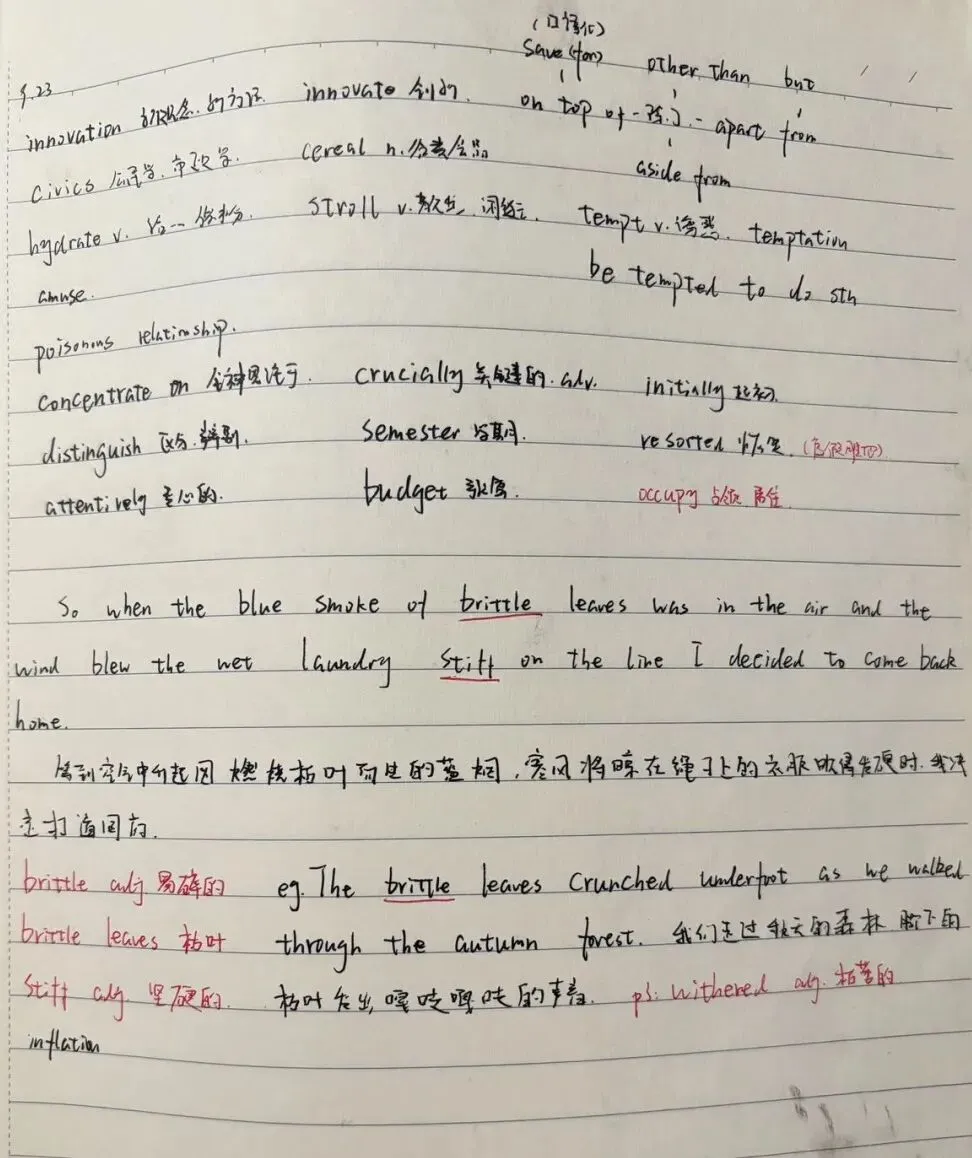 (口语化)
save (for) other than but
9.23
innovation 新观念.新方法 innovate 创新 on top of - 除了 - apart from
civics 公民学.市政学. cereal n.谷类食品 aside from
hydrate v. 给...保水分. stroll v.散步,闲逛. tempt v.诱惑. temptation
be tempted to do sth
amuse.
poisonous relationship.
concentrate on 全神贯注于. crucially 关键的.adv. initially 起初.
distinguish 区分.辨别. semester 学期. resorted
attentively 专心的. budget 预算. occupy 占领 居住
So when the blue smoke of brittle leaves was in the air and the
wind blew the wet laundry stiff on the line I decided to come back
home.
等到空气中升起因燃烧枯叶而生的蓝烟,寒风将晾在绳子上的衣服吹得发硬时.我决
定打道回府.
brittle adj 易碎的 eg. The brittle leaves crunched underfoot as we walked
brittle leaves 枯叶 through the autumn forest. 我们走过秋天的森林 脚下的
stiff adj. 坚硬的. 枯叶发出嘎吱嘎吱的声音. ps: withered adj. 枯萎的
inflation